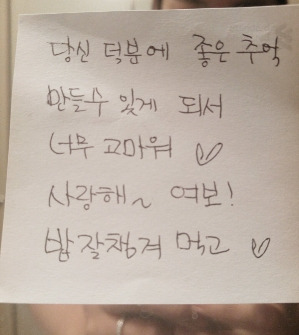 당신 덕분에 좋은 추억
만들수 있게 되서
너무 고마워 ♡
사랑해~ 여보!
밥 잘챙겨 먹고 ♡